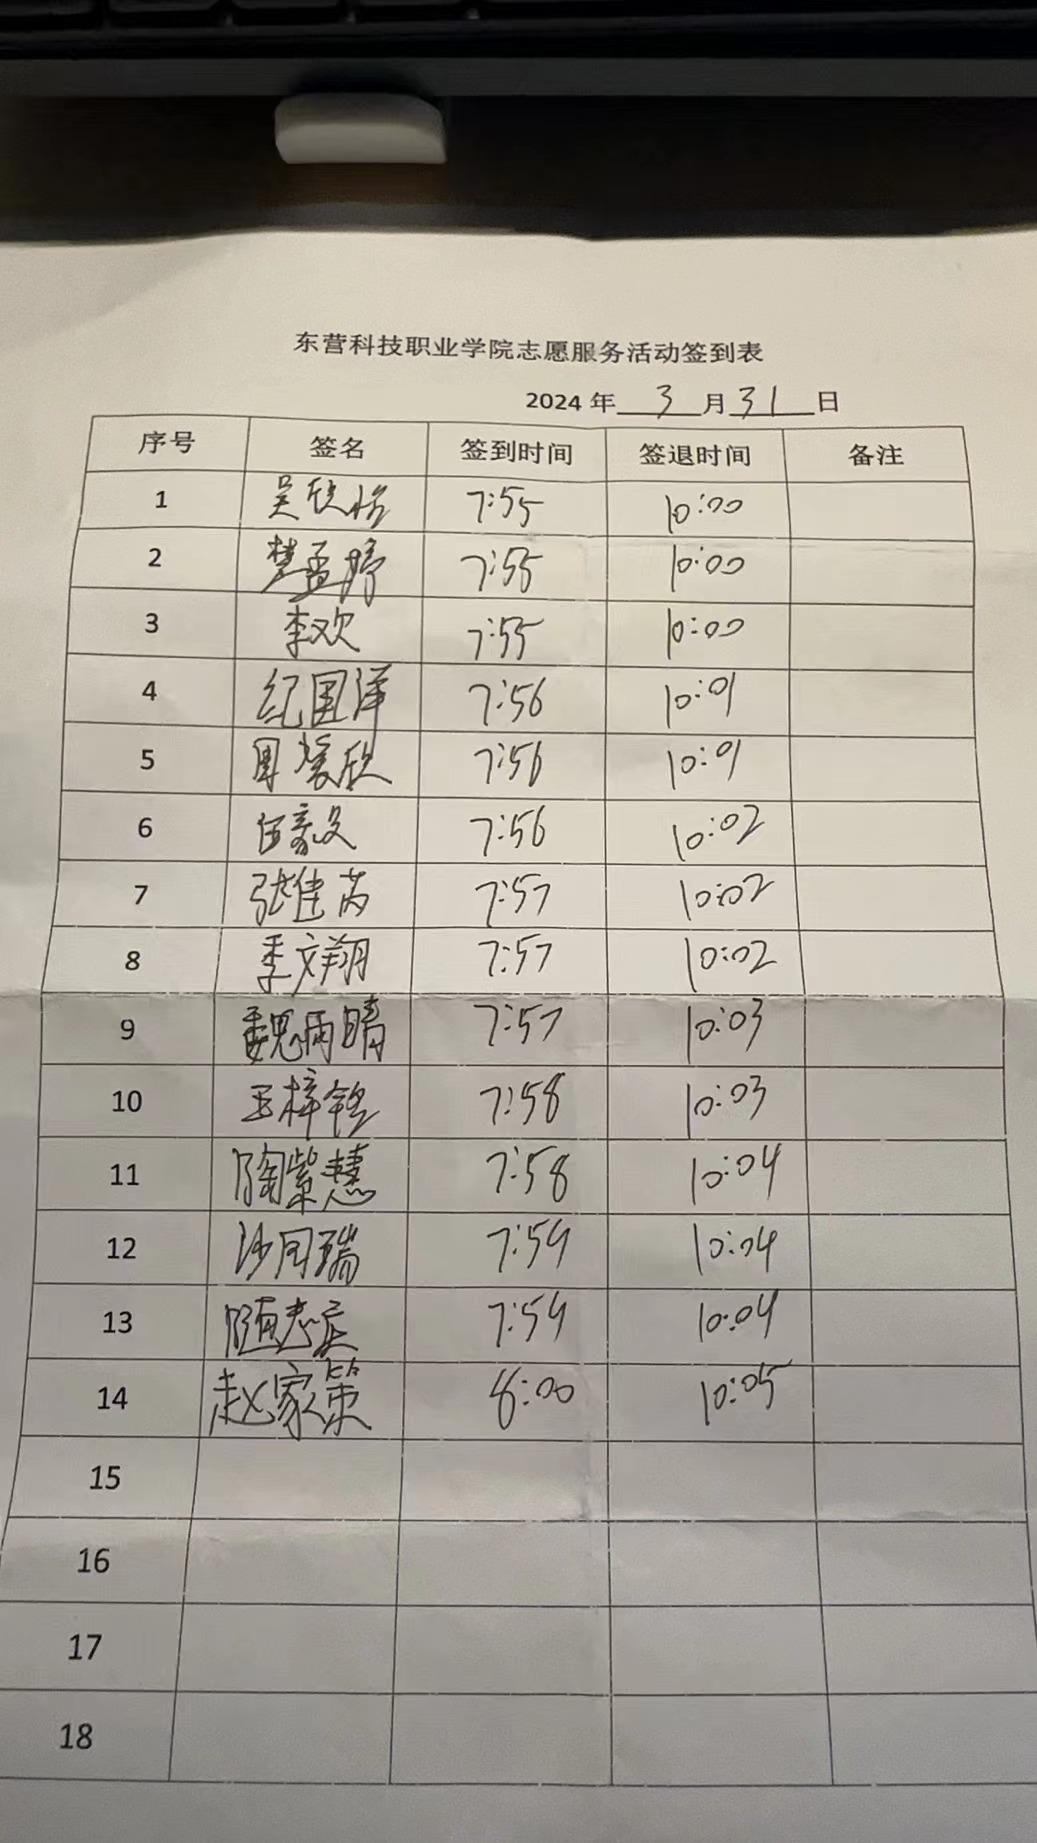 东营科技职业学院志愿服务活动签到表
2024年 3 月 31 日
序号 签名 签到时间 签退时间 备注
1 吴欣怡 7:55 10:00
2 楚孟婷 7:55 10:00
3 李欢 7:55 10:00
4 纪国洋 7:56 10:01
5 周馨欣 7:56 10:01
6 7:56 10:02
7 张佳芮 7:57 10:02
8 季文翔 7:57 10:02
9 魏雨晴 7:57 10:03
10 王梓铭 7:58 10:03
11 陶紫慧 7:58 10:04
12 沙同瑞 7:59 10:04
13 随志 7:59 10:04
14 赵家策 8:00 10:05
15
16
17
18